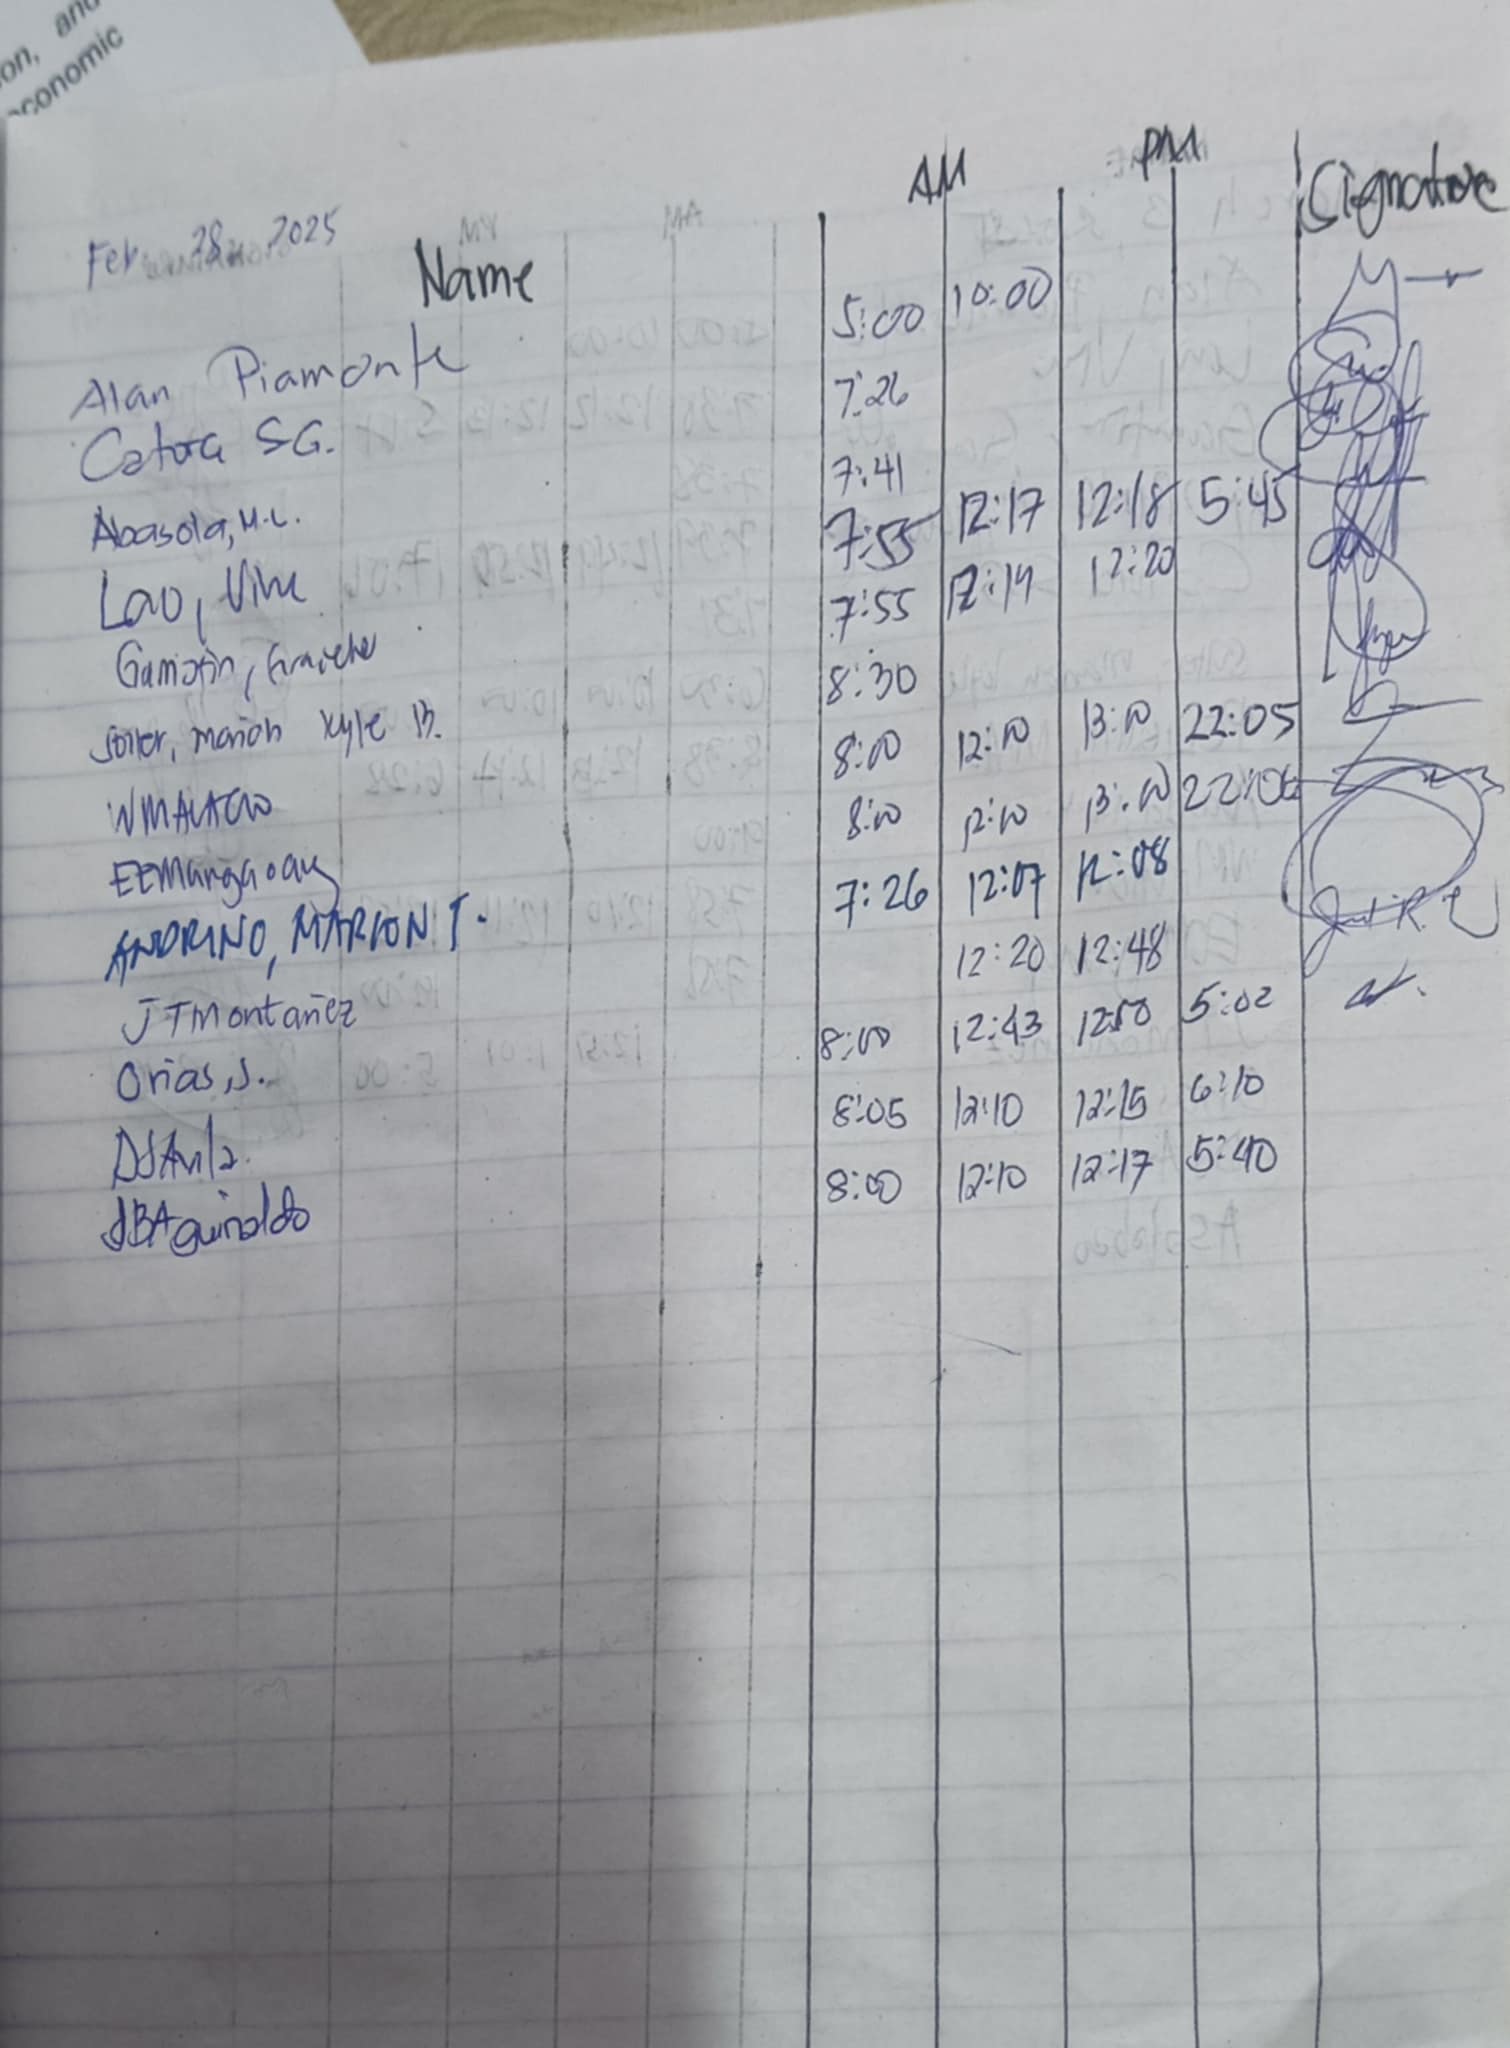 on, and
economic
AM PM Signature
Feb. 28, 2025
Name
Alan Piamonte 5:00 10:00
Catura S.G. 7:26
Abasola, M.L. 7:41
Lao, Vine 7:55 12:17 12:18 5:45
7:55 12:19 12:20
Soller, Marion Kyle B. 8:30
WMALACAO 8:00 12:00 13:00 22:05
EEMangaoay 8:00 12:00 13:00 22:06
ANDRINO, MARION T. 7:26 12:07 12:08
JTMontañez 12:20 12:48
Orias, J. 8:00 12:43 1250 5:02
DJAvila. 8:05 12:10 12:15 6:10
JBAguinaldo 8:00 12:10 12:17 5:40